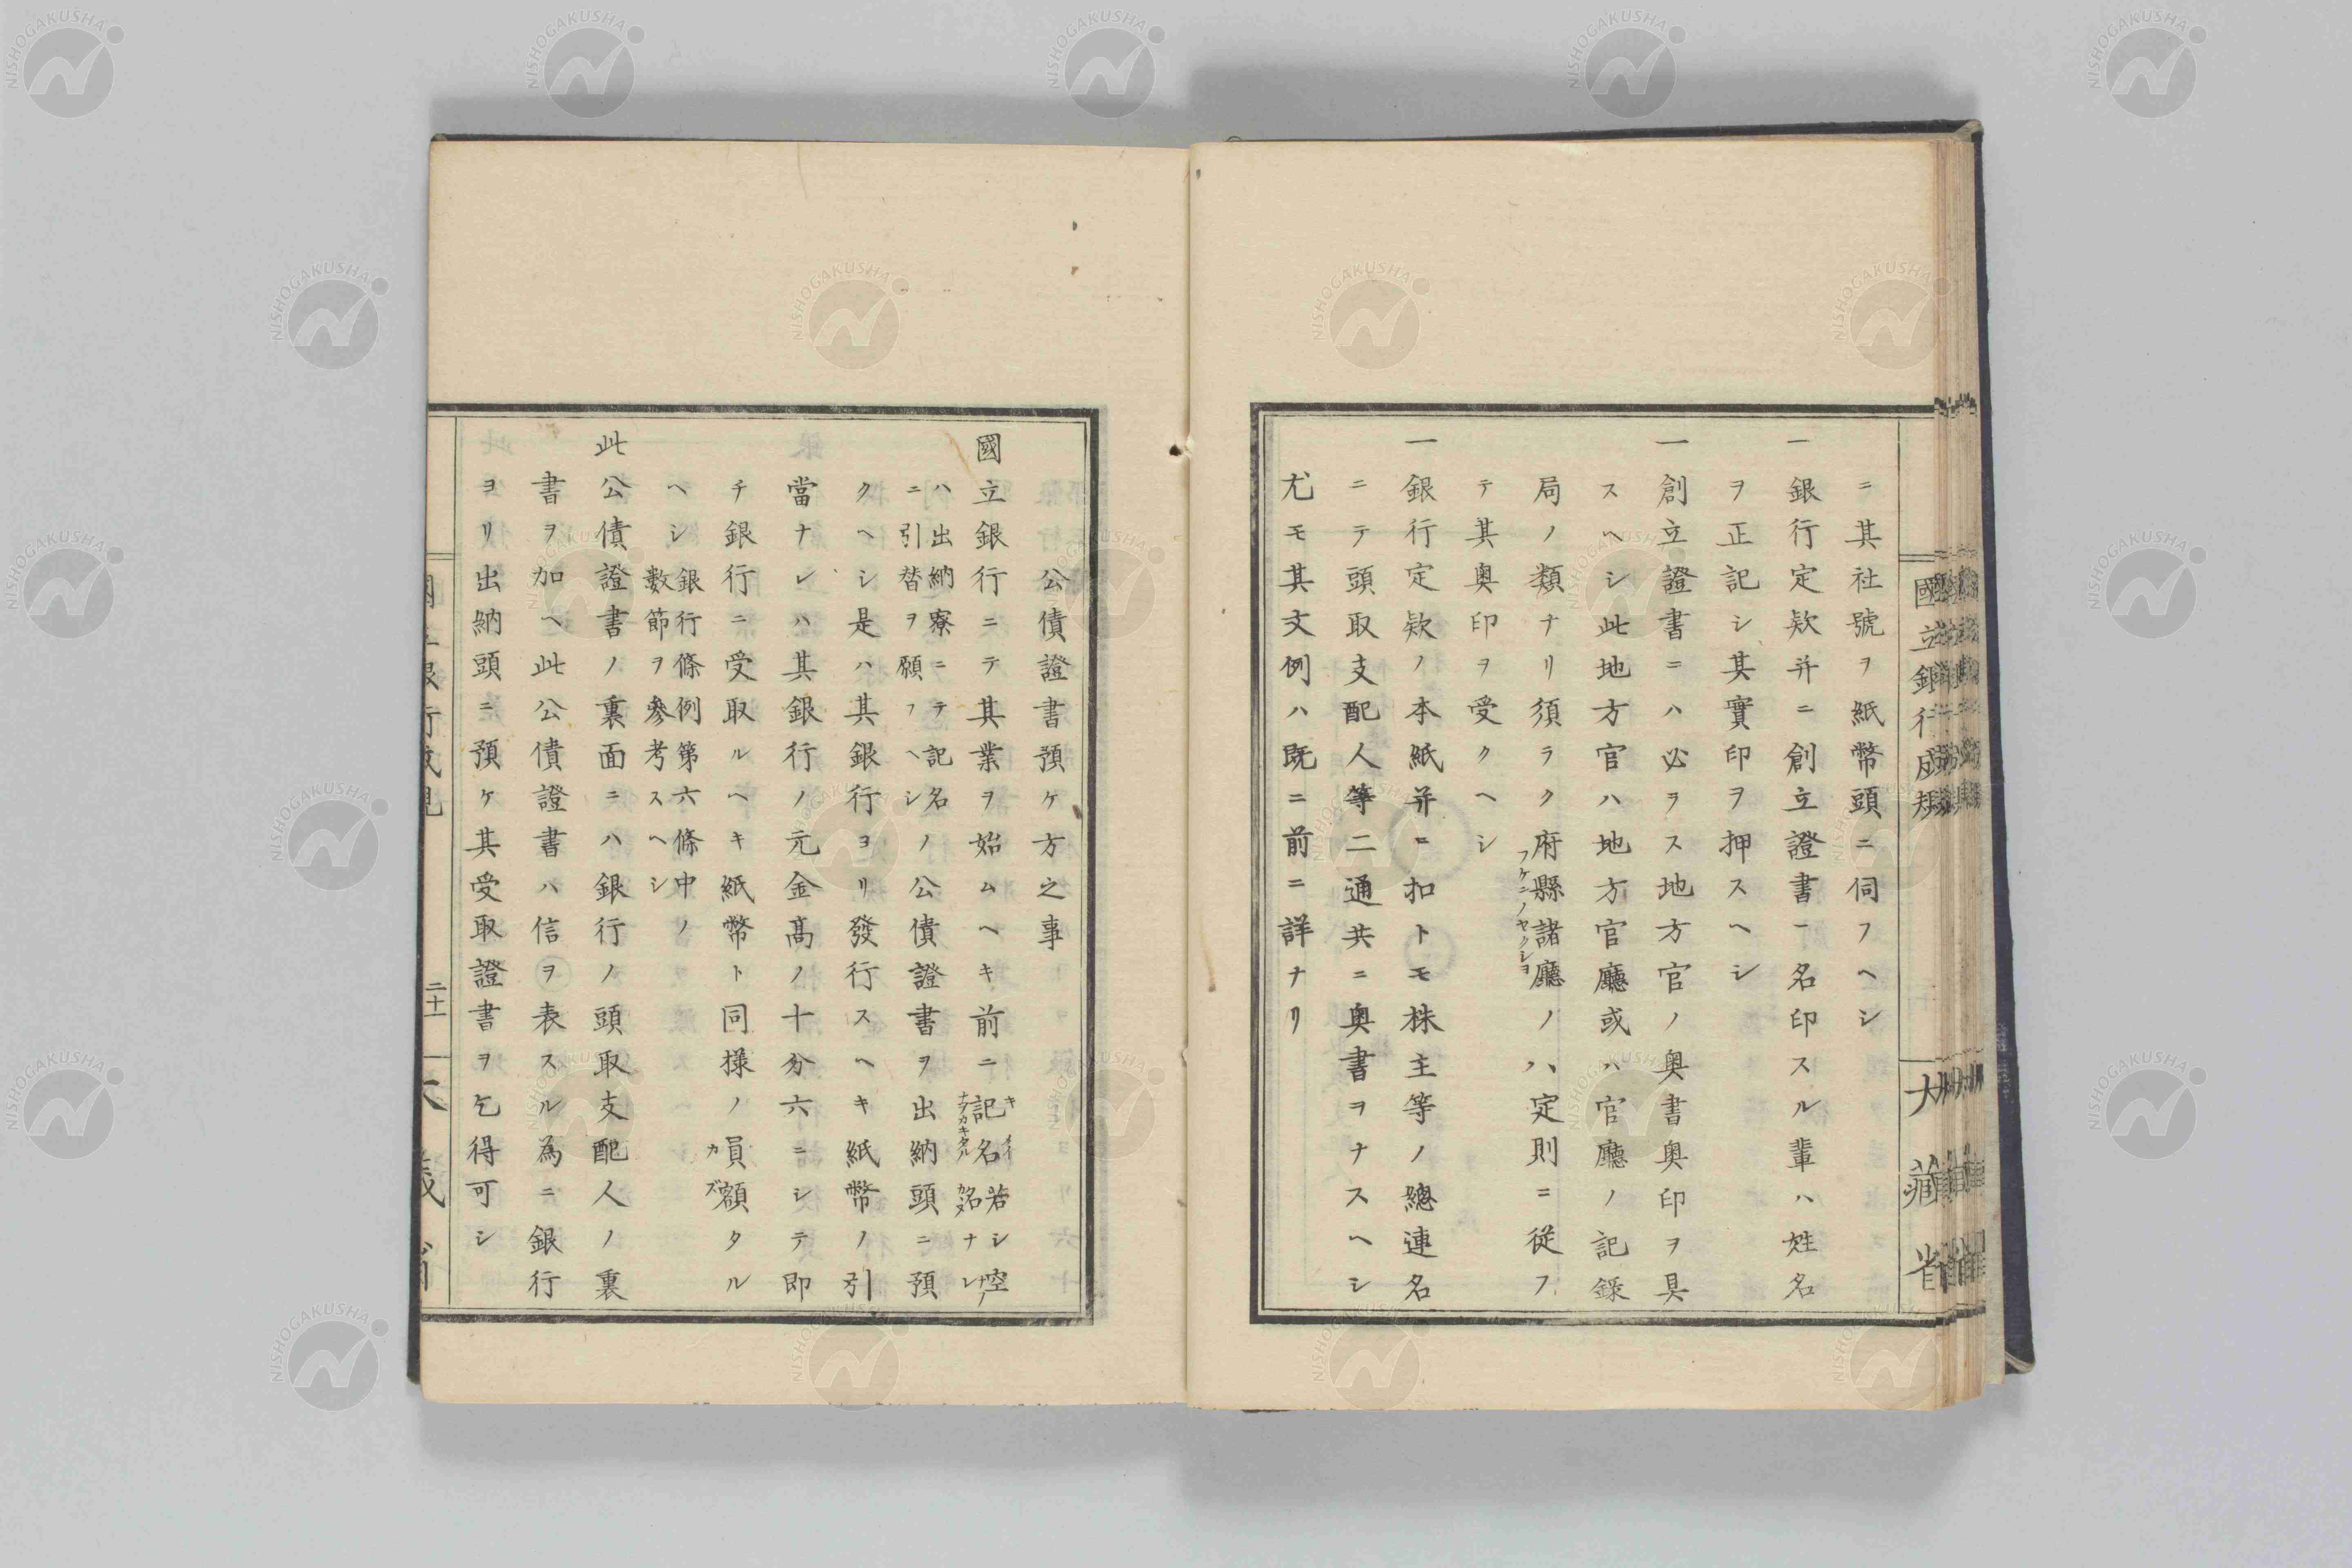 ニ其社號ヲ紙幣頭ニ伺フヘシ
一銀行定欵并ニ創立證書ニ名印スル輩ハ姓名
ヲ正記シ其實印ヲ押スヘシ
一創立證書ニハ必ラス地方官ノ奥書奥印ヲ具
スヘシ此地方官ハ地方官廳或ハ官廳ノ記録
局ノ類ナリ須ラク府縣諸廳ノハ定則ニ従フ
フケニノヤクシヨ
テ其奥印ヲ受クヘシ
一銀行定欵ノ本紙并ニ扣トモ株主等ノ總連名
ニテ頭取支配人等二通共ニ奥書ヲナスヘシ
尤モ其文例ハ既ニ前ニ詳ナリ
國立銀行成規
大藏省
公債證書預ケ方之事
國立銀行ニテ其業ヲ始ムヘキ前ニ記名若シ空名ナレ
キイ
ナヲカキタル
ハ出納寮ニテ記名
ニ引替ヲ願フヘシ
ノ公債證書ヲ出納頭ニ預
クヘシ是ハ其銀行ヨリ發行スヘキ紙幣ノ引
當ナレハ其銀行ノ元金高ノ十分六ニシテ即
チ銀行ニ受取ルヘキ紙幣ト同様ノ員額タル
カズ
ヘシ
銀行條例第六條中ノ
數節ヲ參考スヘシ
此公債證書ノ裏面ニハ銀行ノ頭取支配人ノ裏
書ヲ加ヘ此公債證書ハ信ヲ表スル為ニ銀行
ヨリ出納頭ニ預ケ其受取證書ヲ乞得可シ
二十一
NISHOGAKUSHA